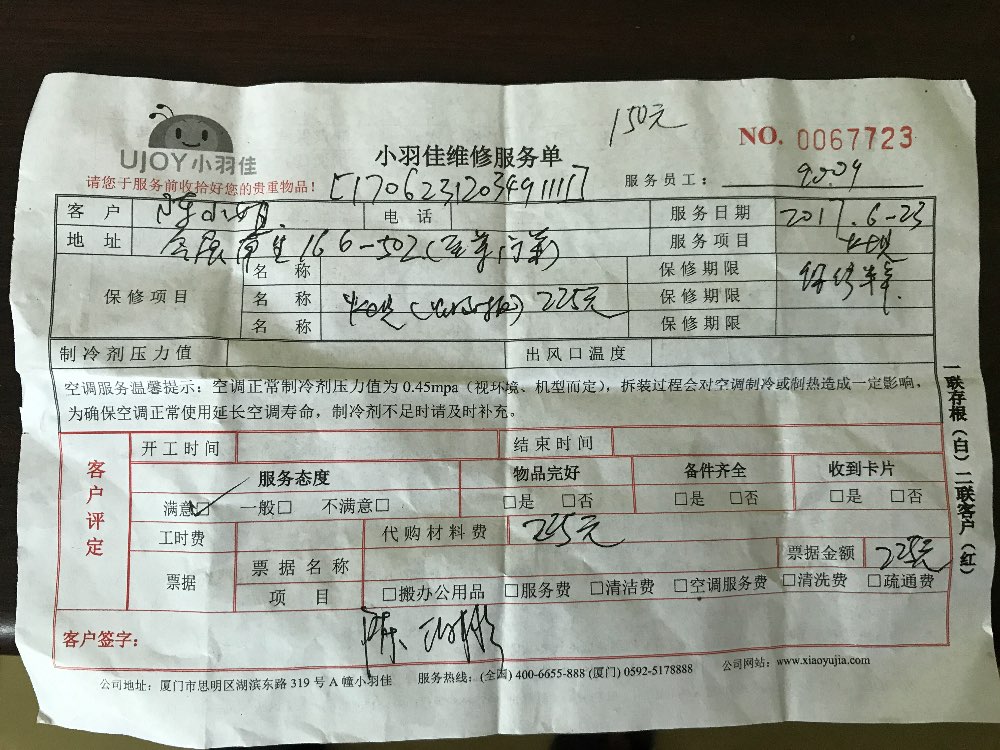 150元
NO. 0067723
UJOY小羽佳
小羽佳维修服务单
请您于服务前收拾好您的贵重物品！
[1706231203491111]
服务员工： 9009
客户 陈小姐 电话 服务日期 2017.6-23
地址 166-502 服务项目
保修项目 名称 保修期限
名称 225元 保修期限
名称 保修期限
制冷剂压力值 出风口温度
空调服务温馨提示：空调正常制冷剂压力值为 0.45mpa（视环境、机型而定），拆装过程会对空调制冷或制热造成一定影响，
为确保空调正常使用延长空调寿命，制冷剂不足时请及时补充。
客户评定 开工时间 结束时间
服务态度 物品完好 备件齐全 收到卡片
满意☑ 一般□ 不满意□ □是 □否 □是 □否 □是 □否
工时费 代购材料费 225元
票据 票据名称 票据金额 225元
项目 □搬办公用品 □服务费 □清洁费 □空调服务费 □清洗费 □疏通费
客户签字： 陈
公司地址：厦门市思明区湖滨东路 319 号 A 幢小羽佳 服务热线：(全国) 400-6655-888 (厦门) 0592-5178888 公司网站：www.xiaoyujia.com
一联存根（白）二联客户（红）